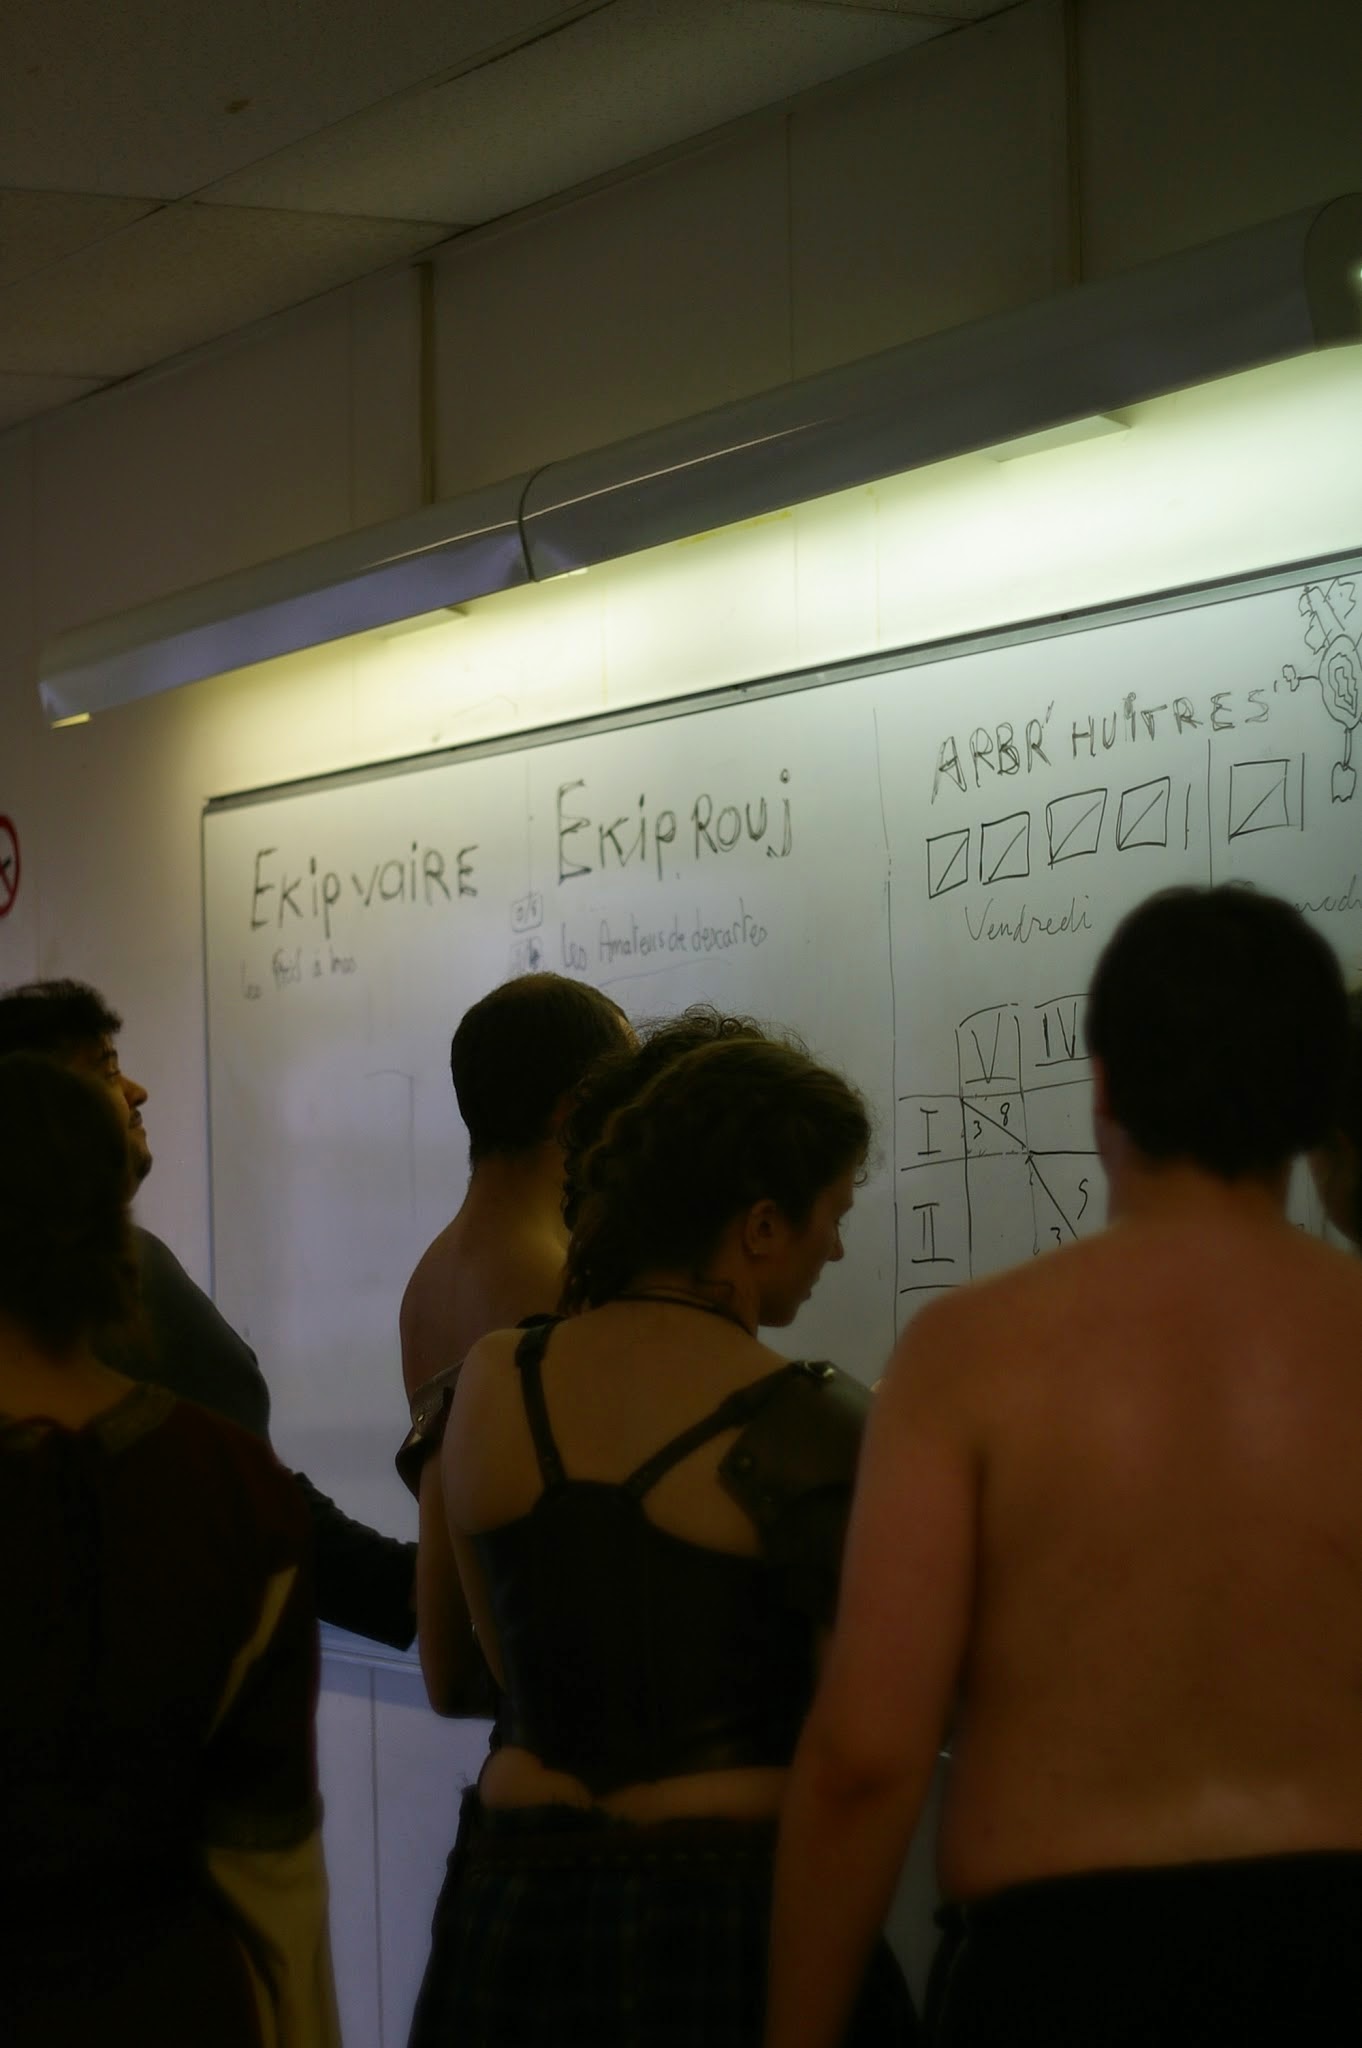 EKip vaiRE
EKip Rouj
Les Amateurs de descartes
ARBR' HUITRES'
Vendredi
V IV
I 3 8
II 3 5